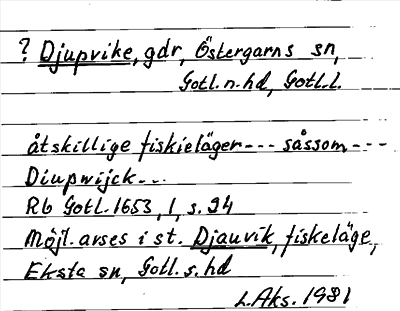 ? Djupvike, gdr, Östergarns sn,
Gotl. n. hd, Gotl. l.
åtskillige fiskieläger --- såssom ---
Diupwijck ---
Rb Gotl. 1653, 1, s. 94
Möjl. avses i st. Djauvik, fiskeläge,
Eksta sn, Gotl. s. hd
L. Aks. 1981